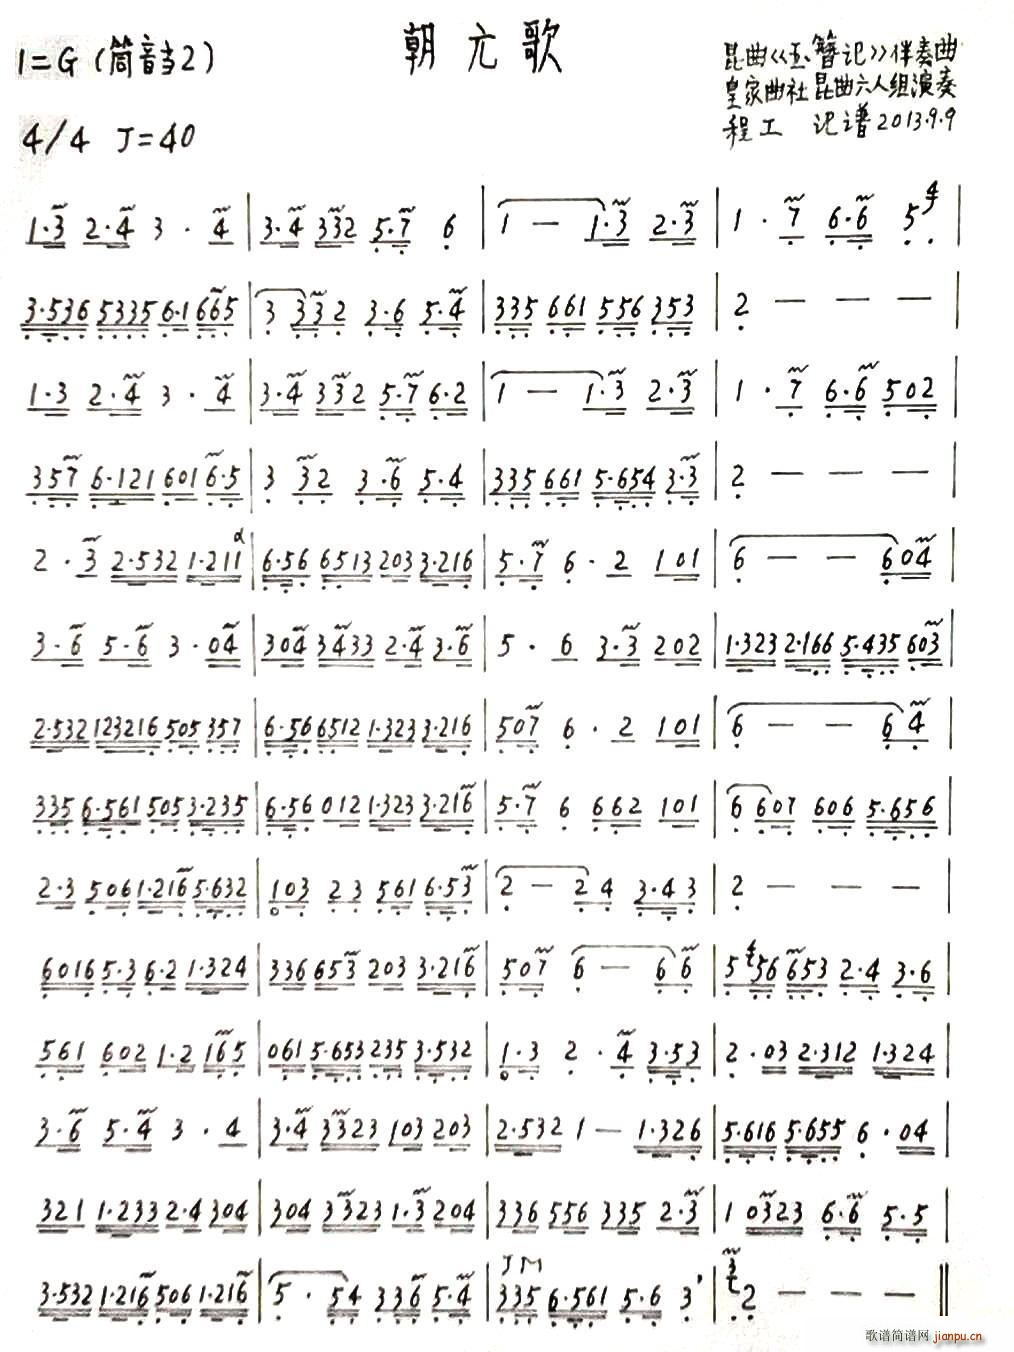 朝元歌
1=G (筒音当2)
4/4 J=40
昆曲《玉簪记》伴奏曲
皇家曲社 昆曲六人组演奏
程工 记谱 2013.9.9
1·3 2·4 3 · 4 | 3·4 332 5·7 6 | 1 — 1·3 2·3 | 1 · 7 6·6 5 |
3·536 5335 6·1 665 | 3 332 3·6 5·4 | 335 661 556 353 | 2 — — — |
1·3 2·4 3 · 4 | 3·4 332 5·7 6·2 | 1 — 1·3 2·3 | 1 · 7 6·6 502 |
357 6·121 601 6·5 | 3 32 3·6 5·4 | 335 661 5·654 3·3 | 2 — — — |
2 · 3 2·532 1·211 | 6·56 6513 203 3·216 | 5·7 6 · 2 101 | 6 — — 604 |
3·6 5·6 3 · 04 | 304 3433 2·4 3·6 | 5 · 6 3·3 202 | 1·323 2·166 5·435 603 |
2·532 123216 505 357 | 6·56 6512 1·323 3·216 | 507 6 · 2 101 | 6 — — 64 |
335 6·561 505 3·235 | 6·56 012 1·323 3·216 | 5·7 6 662 101 | 6 607 606 5·656 |
2·3 506 1·216 5·632 | 103 23 561 6·53 | 2 — 24 3·43 | 2 — — — |
6016 5·3 6·2 1·324 | 336 653 203 3·216 | 507 6 — 66 | 5 56 653 2·4 3·6 |
561 602 1·2 165 | 061 5·653 235 3·532 | 1·3 2 · 4 3·53 | 2·03 2·312 1·324 |
3·6 5·4 3 · 4 | 3·4 3323 103 203 | 2·532 1 — 1·326 | 5·616 5·655 6 · 04 |
321 1·233 2·4 304 | 304 3323 1·3 204 | 336 556 335 2·3 | 1 0323 6·6 5·5 |
3·532 1·216 506 1·216 | 5 · 54 336 5·4 | 335 6·561 5·6 3 | 2 — — — ‖
歌谱简谱网 jianpu.cn